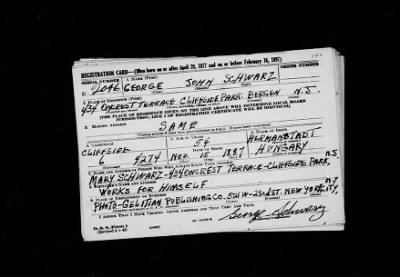 REGISTRATION CARD—(Men born on or after April 28, 1877 and on or before February 16, 1897)
SERIAL NUMBER 1. NAME (Print) ORDER NUMBER
U 2046 GEORGE JOHN SCHWARZ
(First) (Middle) (Last)
2. PLACE OF RESIDENCE (Print)
434 ONCREST TERRACE CLIFFSIDE PARK BERGEN N.J.
[THE PLACE OF RESIDENCE GIVEN ON THE LINE ABOVE WILL DETERMINE LOCAL BOARD
JURISDICTION; LINE 2 OF REGISTRATION CERTIFICATE WILL BE IDENTICAL]
3. MAILING ADDRESS
SAME
4. TELEPHONE 5. AGE IN YEARS 6. PLACE OF BIRTH
CLIFFSIDE 54 HERMANSTADT
DATE OF BIRTH
6 4274 NOV. 15 1887 HUNGARY
7. NAME AND ADDRESS OF PERSON WHO WILL ALWAYS KNOW YOUR ADDRESS
MARY SCHWARZ-434 ONCREST TERRACE-CLIFFSIDE PARK, N.J.
8. EMPLOYER'S NAME AND ADDRESS
WORKS FOR HIMSELF
9. PLACE OF EMPLOYMENT OR BUSINESS
PHOTO-GELITIAN PUBLISHING CO. 521 W-23rd ST. NEW YORK CITY, N.Y.
I AFFIRM THAT I HAVE VERIFIED ABOVE ANSWERS AND THAT THEY ARE TRUE.
D.S.S. Form 1
George Schwarz